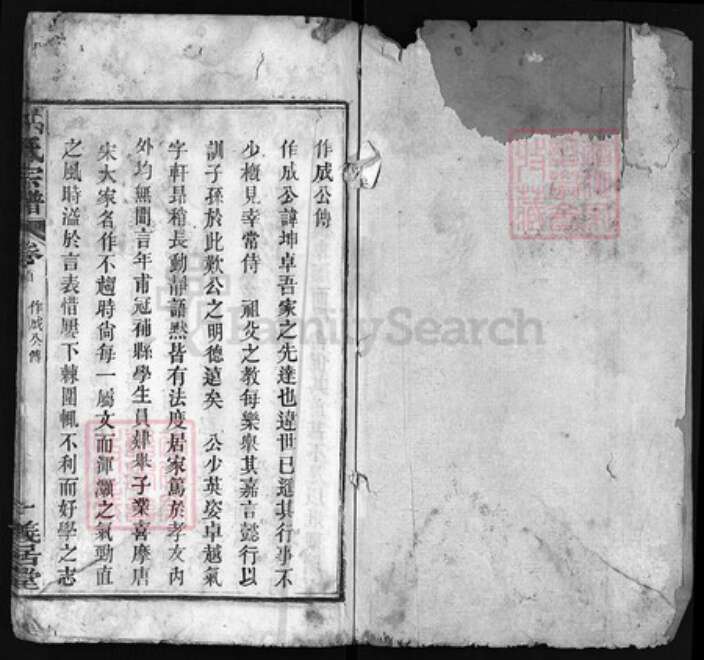 作成公傳
作成公諱坤卓吾家之先達也違世已遠其行事不
少概見幸常侍 祖父之教每樂舉其嘉言懿行以
訓子孫於此歎公之明德遠矣 公少英姿卓越氣
宇軒昻稍長動靜語默皆有法度居家篤於孝友內
外均無閒言年甫冠補縣學生員肄舉子業喜摩唐
宋大家名作不趨時尙每一屬文而渾灝之氣勁直
之風時溢於言表惜屢下棘圍輒不利而好學之志
氏宗譜
卷
作成公傳
一
義居堂
FamilySearch